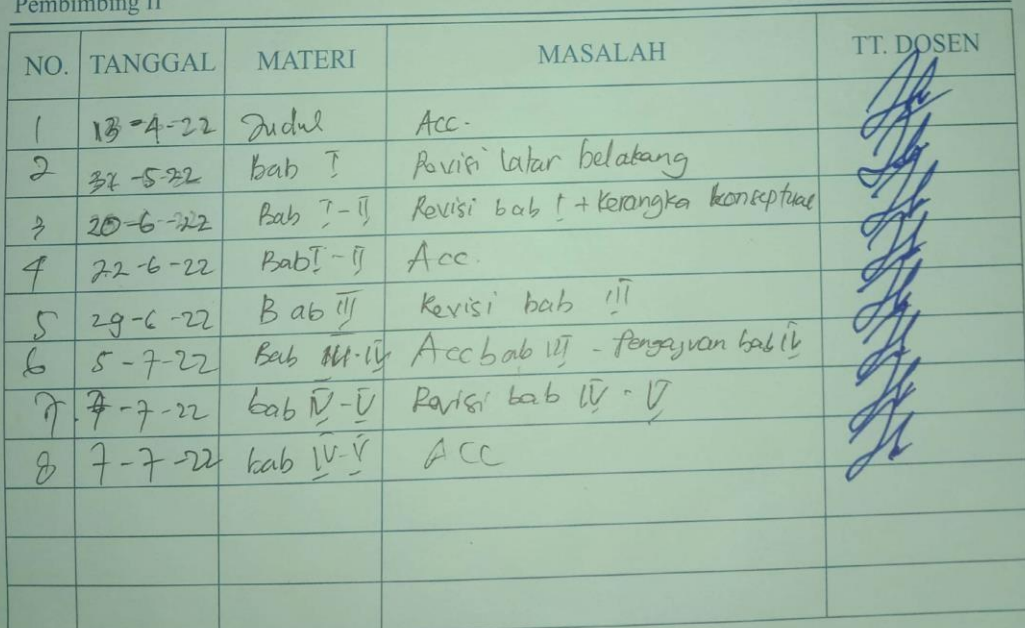 Pembimbing II
NO. TANGGAL MATERI MASALAH TT. DOSEN
1 13-4-22 Judul Acc.
2 31-5-22 Bab I Revisi latar belakang
3 20-6-22 Bab I-II Revisi bab I + Kerangka konseptual
4 22-6-22 Bab I-II Acc.
5 29-6-22 Bab III Revisi bab III
6 5-7-22 Bab III-IV Acc bab III - Pengajuan bab IV
7. 7-7-22 bab IV-V Revisi bab IV-V
8 7-7-22 bab IV-V ACC